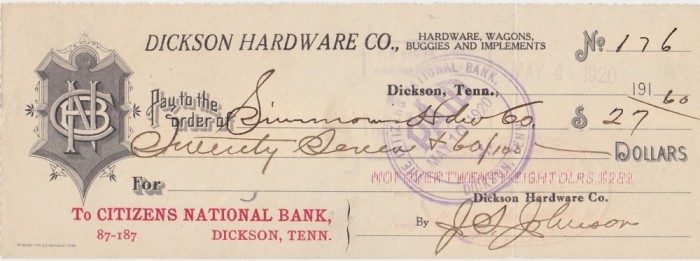 DICKSON HARDWARE CO., HARDWARE, WAGONS, BUGGIES AND IMPLEMENTS No. 176
MAY 4 - 1920
Dickson, Tenn., 191
Pay to the order of Simmons Hdw Co. $ 27 60
Twenty Seven & 60/100 DOLLARS
THE CITIZENS NATIONAL BANK, DICKSON, TENN.
PAID
MAY 10 1920
NOT OVER TWENTY EIGHT DOLRS $28$
For
Dickson Hardware Co.
CNB
To CITIZENS NATIONAL BANK,
87-187 DICKSON, TENN.
By J. S. Johnson